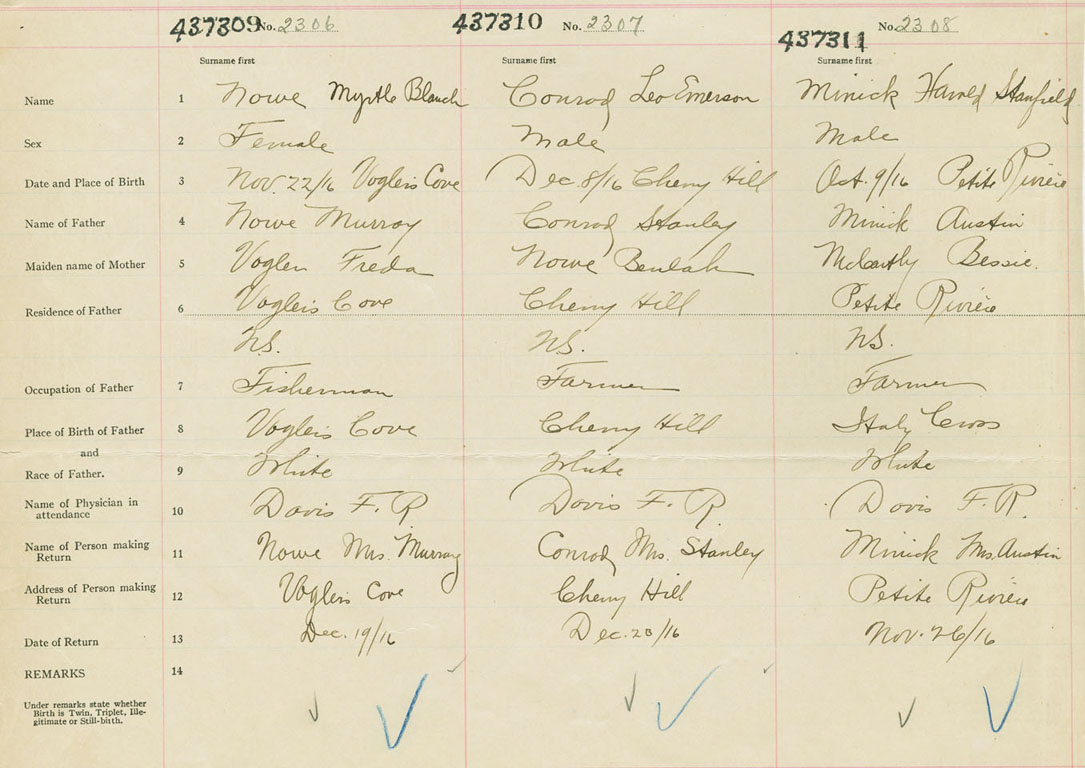 437309 No. 2306 437310 No. 2307 437311 No. 2308
Surname first Surname first Surname first
Name 1 Nowe Myrtle Blanch Conrod Leo Emerson Minick Harold Stanfield
Sex 2 Female Male Male
Date and Place of Birth 3 Nov. 22/16 Voglers Cove Dec. 8/16 Cherry Hill Oct. 9/16 Petite Riviere
Name of Father 4 Nowe Murray Conrod Stanley Minick Austin
Maiden name of Mother 5 Vogler Freda Nowe Beulah McCarthy Bessie.
Residence of Father 6 Voglers Cove Cherry Hill Petite Riviere
N.S. N.S. N.S.
Occupation of Father 7 Fisherman Farmer Farmer
Place of Birth of Father 8 Voglers Cove Cherry Hill Italy Cross
and
Race of Father. 9 White White White
Name of Physician in
attendance 10 Davis F. R Davis F. R. Davis F. R.
Name of Person making
Return 11 Nowe Mrs. Murray Conrod Mrs. Stanley Minick Mrs. Austin
Address of Person making
Return 12 Voglers Cove Cherry Hill Petite Riviere
Date of Return 13 Dec. 19/16 Dec. 20/16 Nov. 26/16
REMARKS 14
Under remarks state whether
Birth is Twin, Triplet, Ille-
gitimate or Still-birth.